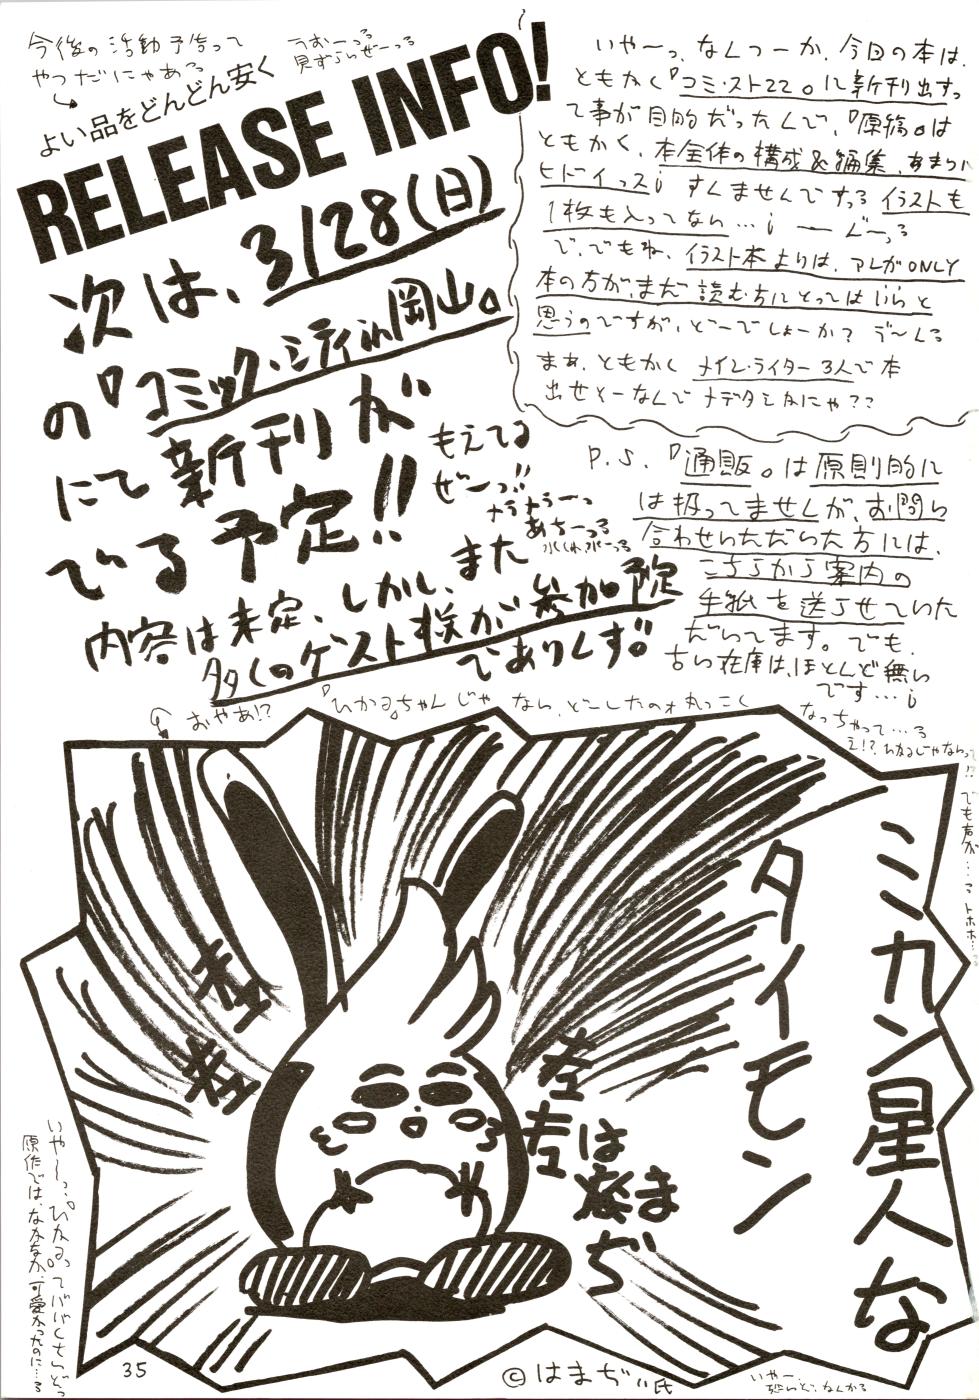 今後の活動予告って
やつだにゃあ〜る
うおーっる
見ずらいぜーっる
よい品をどんどん安く
RELEASE INFO!
次は、3/28(日)
の『コミック・シティin岡山』
にて新刊が
でる予定!!
もえてる
ぜーっ!!
あちーっる
内容は未定、しかし、また
多くのゲスト様が参加予定
でありんす。
いやーっ、なんつーか、今回の本は、
ともかく『コミ・スト22』に新刊出すっ
て事が目的だったんで、『原稿』は
ともかく、本全体の構成&編集、あまりい
ヒドイっス¡ すんませんですっる イラストも
1枚も入ってない…¡ ーんーっる
で、でもね、イラスト本よりは、アレがONLY
本の方が、まだ読む方にとってはいいと
思うのですが、どーでしょーか? う〜んる
まぁ、ともかく メイン・ライター3人で本
出せそーなんでメデタシかにゃ??
P.S.『通販』は原則的に
は扱ってませんが、お問い
合わせいただいた方には、
こちらから案内の
手紙を送らせていた
だいてます。でも、
古い在庫は、ほとんど無い
です…¡
おやあ!?
『ひかる』ちゃんじゃ ない、どーしたのォ 丸っこく
なっちゃって…る
え!? ひかるじゃないって
!? でも声が…る トホホ…る
ミカン星人な
タイモン
左
左
左
左
はまぢ
いやーっ、『ひかる』って
原作では、なかなか、可愛かったのに…る
35
©はまぢぃ氏
いやー、